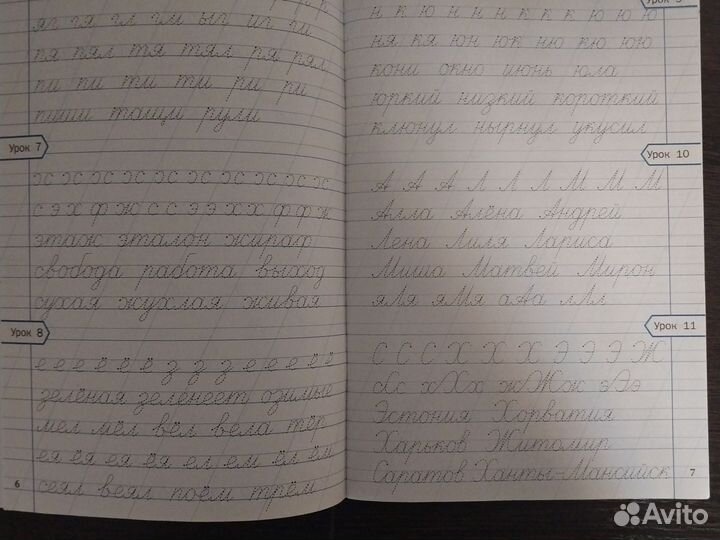 яг гя гл гм ыг иг ги
кя кял тя тял ря рял
пи пи ти ти ри ри
пиши тащи рули
Урок 7
с э х ф ж с с э э х х ф ф ж
этаж эталон жираф
свобода работа выход
сухая жухлая живая
Урок 8
е е е ё ё ё з з з е е е ё ё
зелёная зеленеет озимые
мел мёл вёл вела тёр
ея ёя ея ёя ел ем ёл ём
сеял веял поём трём
6
н к ю н н н к к к ю ю ю
ня кя юн юк ню кю юю
кони окно июнь юла
юркий низкий короткий
клюнул нырнул укусил
Урок 10
А А А Л Л Л М М М
Алла Алёна Андрей
Лена Лиля Лариса
Миша Матвей Мирон
яЛя яМя аАа лЛл
Урок 11
С С С Х Х Х Э Э Э Ж
сСс хХх жЖж эЭэ
Эстония Хорватия
Харьков Житомир
Саратов Ханты-Мансийск
7
Avito